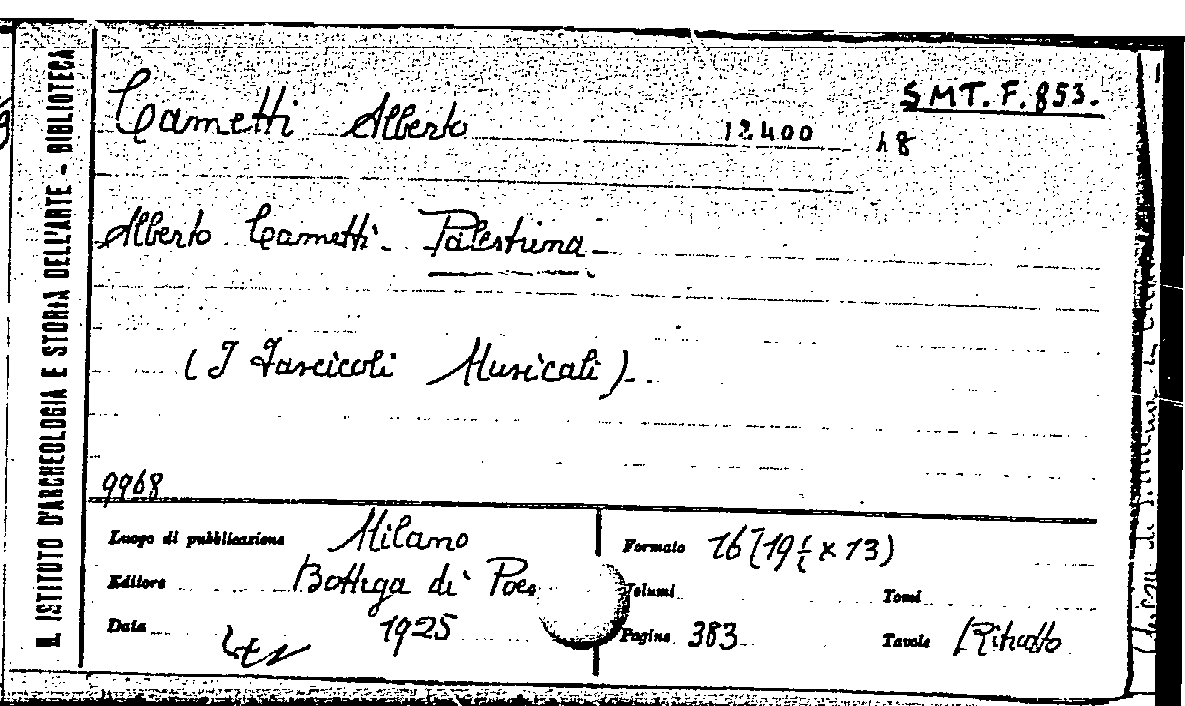 R. ISTITUTO D'ARCHEOLOGIA E STORIA DELL'ARTE - BIBLIOTECA
SMT. F. 853.
Cametti Alberto 12400 48
Alberto Cametti - Palestrina -
(I Fascicoli Musicali) -
9968
Luogo di pubblicazione Milano
Editore Bottega di Poes
Data 1925
Formato 16 (19 1/2 x 13)
Volumi Tomi
Pagine 383 Tavole 1 Ritratto